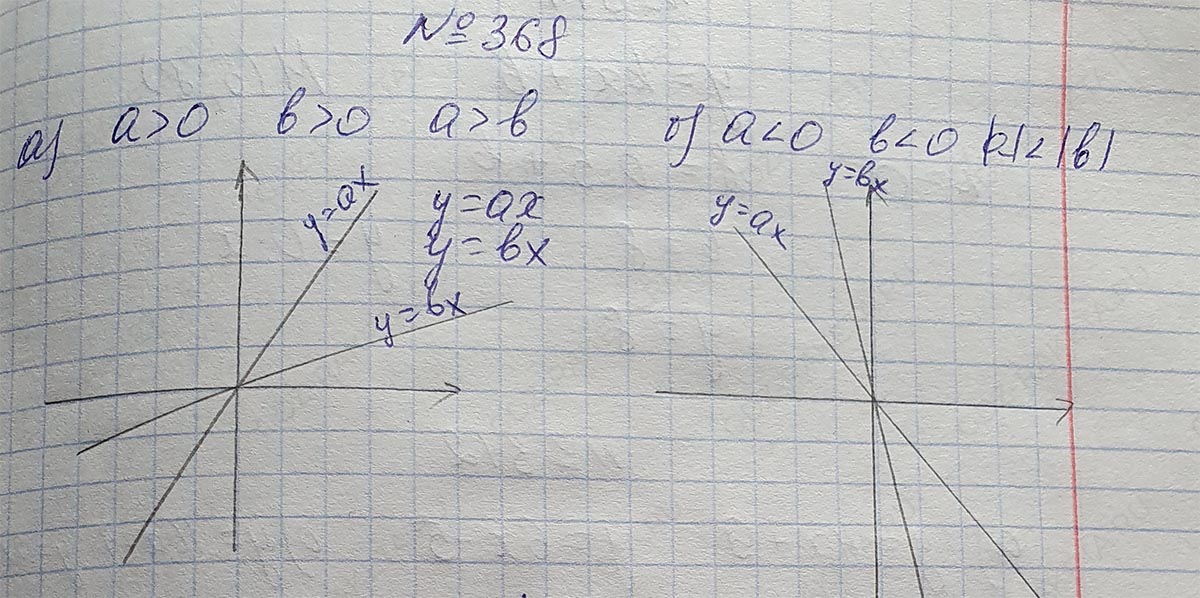 №368
а) a>0 b>0 a>b
y=ax
y=ax
y=bx
y=bx
б) a<0 b<0 |a|<|b|
y=bx
y=ax